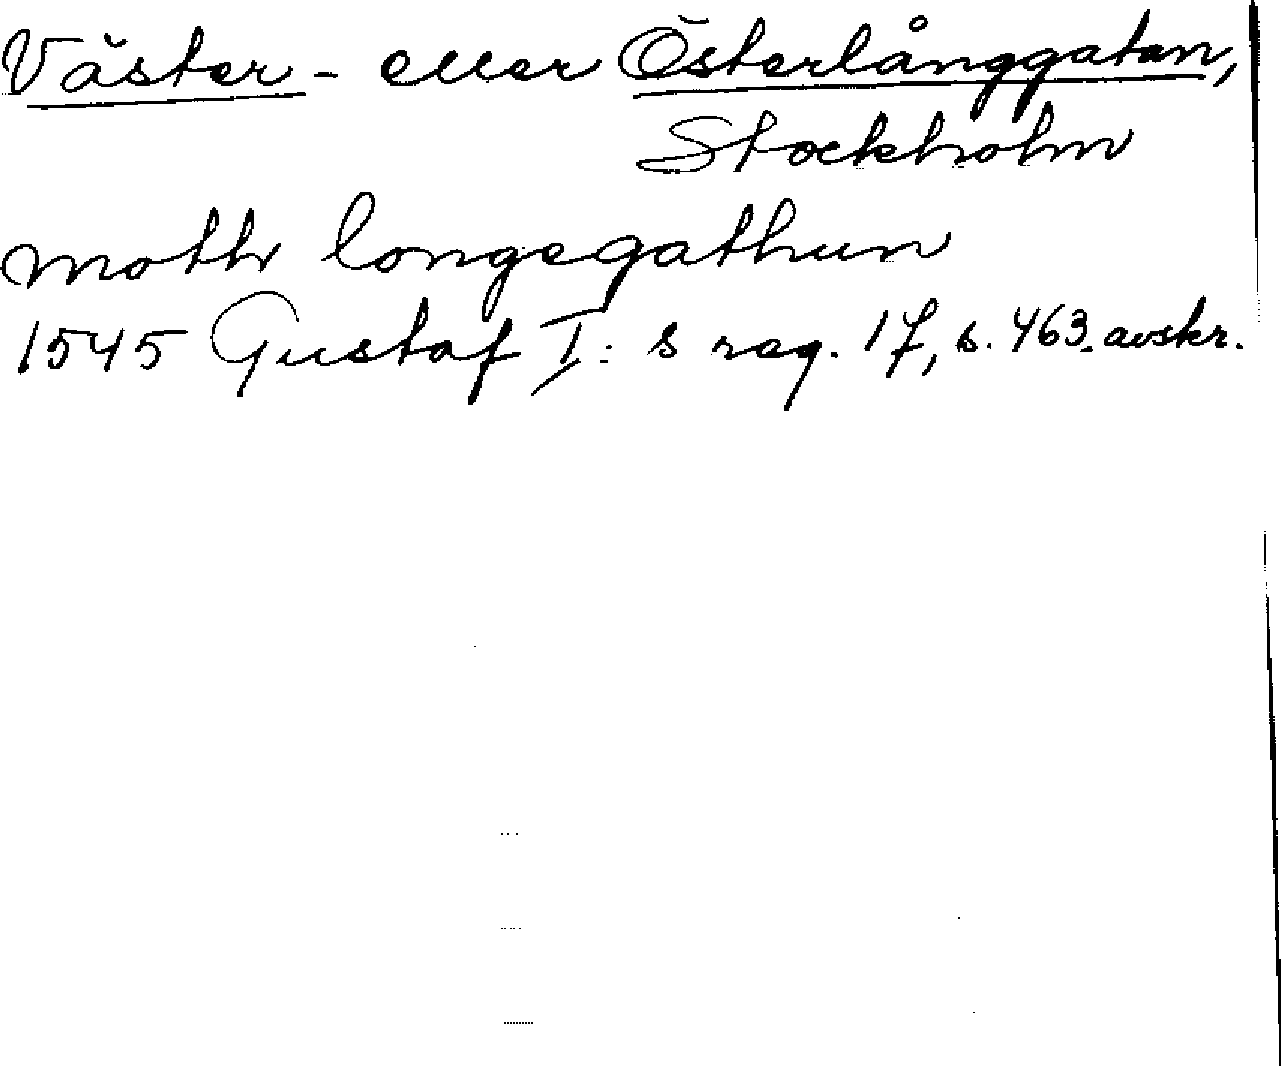 Väster- eller Österlånggatan,
Stockholm
moth longegathun
1545 Gustaf I:s reg. 17, s. 463. avskr.